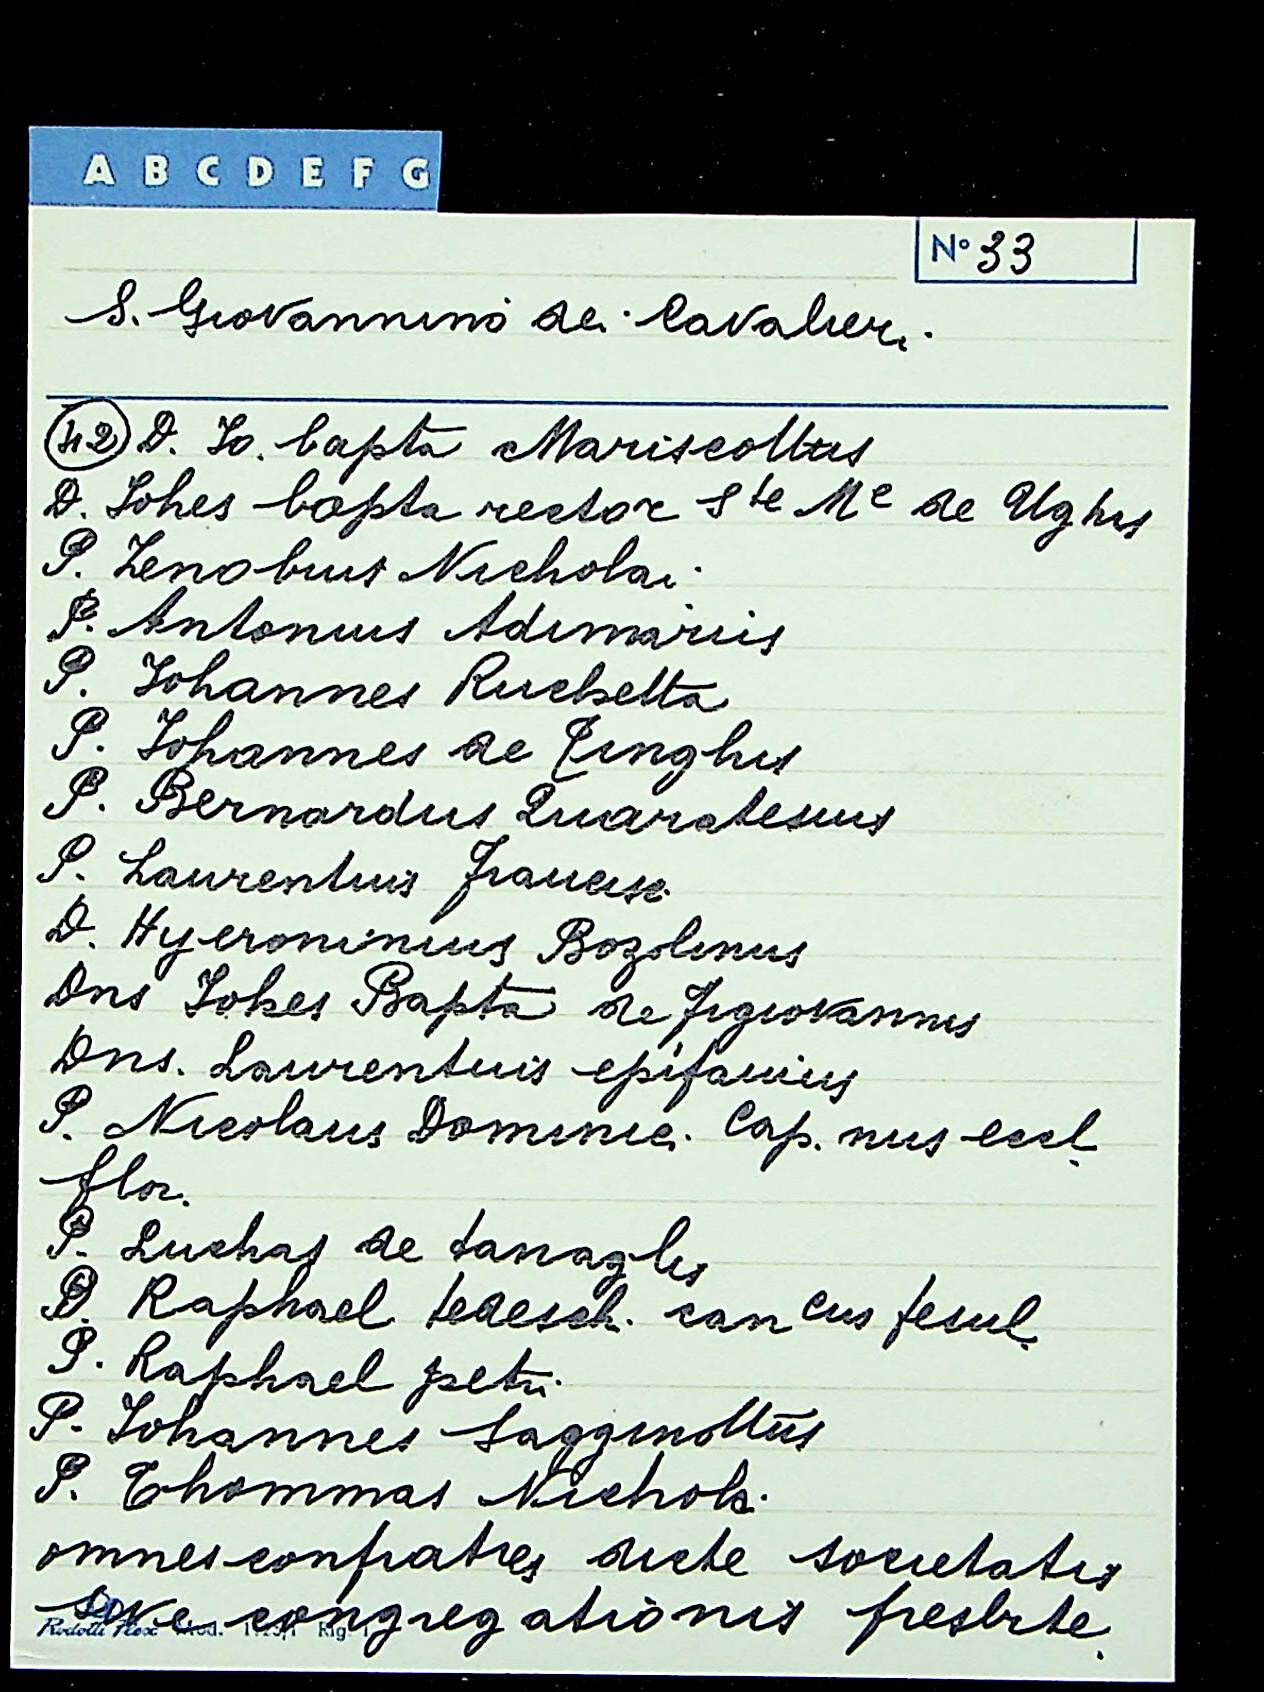 A B C D E F G
N° 33
S. Giovannino dei Cavalieri.
(42) D. Io. bapta Mariscottus
D. Iohes bapta rector Ste Me de Ughis
P. Zenobius Nicholai
P. Antonius Adimarius
P. Johannes Ruchetta
P. Johannes de
P. Bernardus Quaratesius
P. Laurentius Francisc.
D. Hyeronimus Bozolinus
Dns Iohes Bapta de Figiovannis
Dns. Laurentius epifanius
P. Nicolaus Dominici Cap. nus eccl.
flor.
P. Luchas de tanaglis
D. Raphael tedesch. can cus fesul.
P. Raphael petri
P. Johannes Sagginottus
P. Thommas Nichol.
omnes confratres dicte societatis
sive congregationis presbite.
Rodolli Flex Mod.